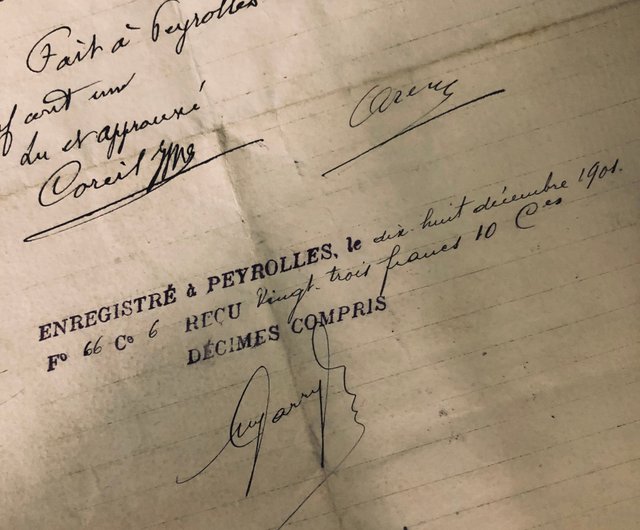 Fait à Peyrolles
cent un
Lu et approuvé
Coreil
ENREGISTRÉ à PEYROLLES, le dix huit décembre 1901.
Fº 66 Cº 6 REÇU Vingt-trois francs 10 Ces
DÉCIMES COMPRIS